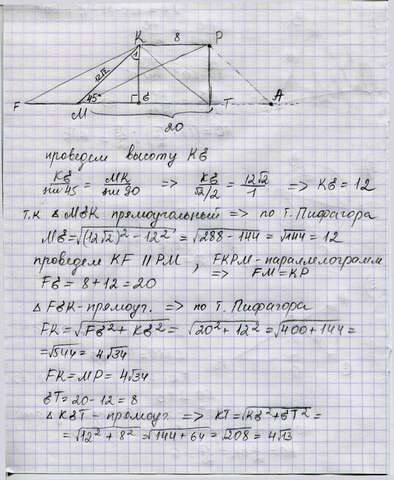 K 8 P
12√2
1
F 45° в T A
M
20
проведем высоту KB
KB/sin 45 = MK/sin 90 => KB/(√2/2) = 12√2/1 => KB = 12
т.к ΔMBK прямоугольный => по т. Пифагора
MB = √((12√2)² - 12²) = √(288 - 144) = √144 = 12
проведем KF || PM , FKPM - параллелограмм
FB = 8 + 12 = 20 => FM = KP
ΔFBK - прямоуг. => по т. Пифагора
FK = √(FB² + KB²) = √(20² + 12²) = √(400 + 144) =
= √544 = 4√34
FK = MP = 4√34
BT = 20 - 12 = 8
ΔKBT - прямоуг => KT = √(KB² + BT²) =
= √(12² + 8²) = √(144 + 64) = √208 = 4√13